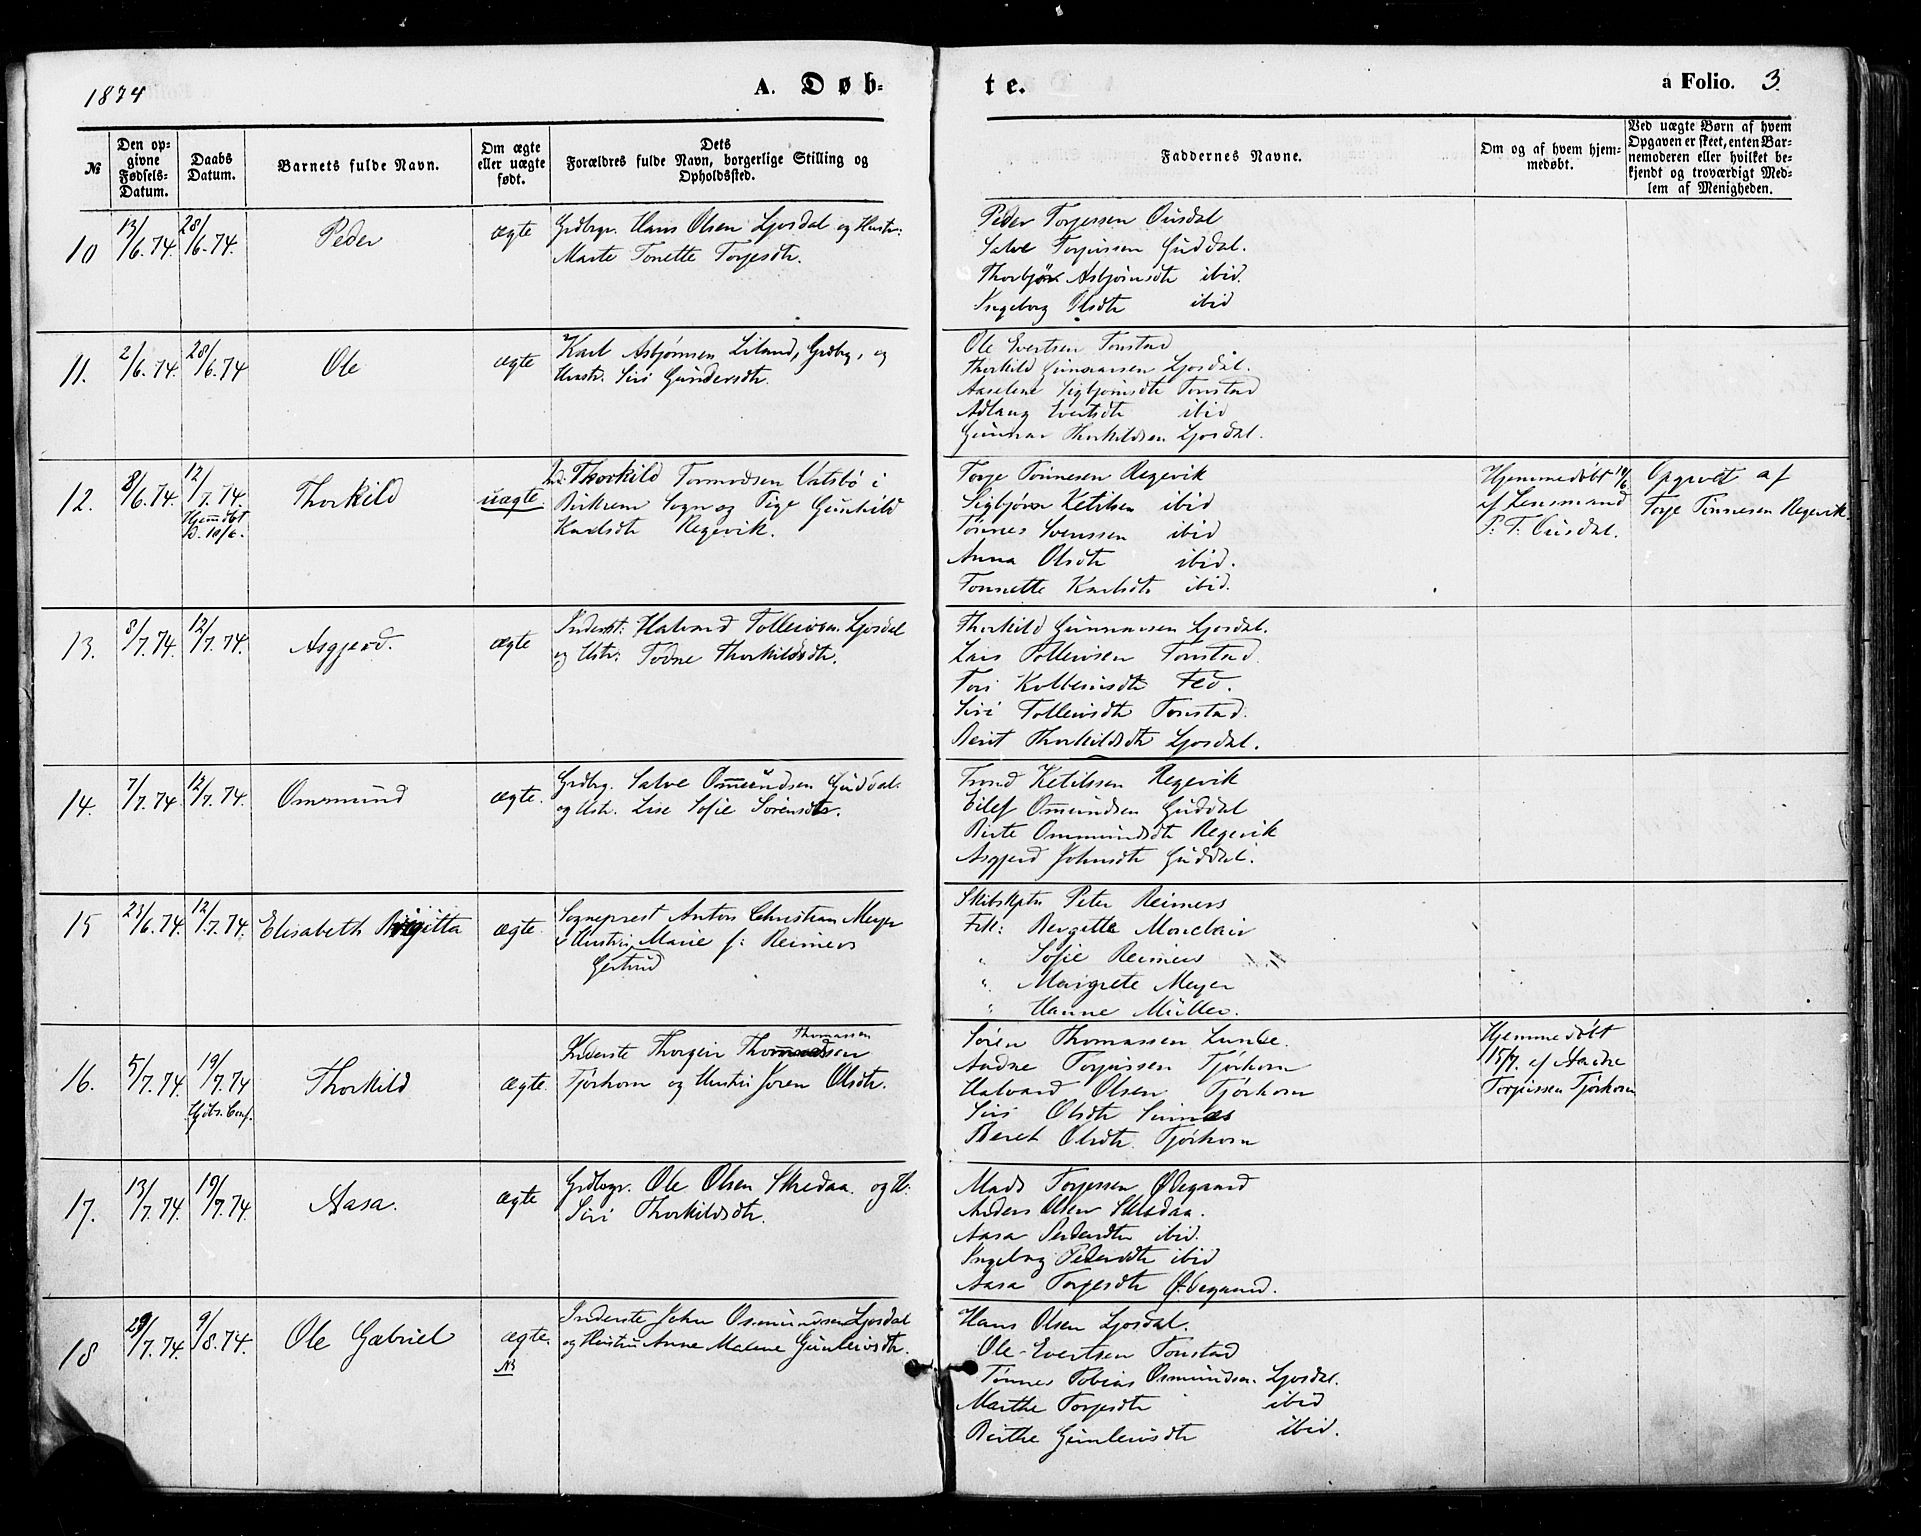 1874
A. Døb-
te.
a Folio. 3.
№
Den op-
givne
Fødsels-
Datum.
Daabs
Datum.
Barnets fulde Navn.
Om ægte
eller uægte
født.
Dets
Forældres fulde Navn, borgerlige Stilling og
Opholdssted.
Faddernes Navne.
Om og af hvem hjem-
medøbt.
Ved uægte Børn af hvem
Opgaven er skeet, enten Bar-
nemoderen eller hvilket be-
kjendt og troværdigt Med-
lem af Menigheden.
10
13/6.74.
28/6.74.
Peder
ægte
Grdbrgr. Hans Olsen Ljosdal og Hustr:
Marte Tonette Torjesdtr.
Peder Torjessen Ousdal
Salve Torjussen Guddal.
Thorbjør Asbjørnsdtr ibid.
Ingeborg Olsdtr ibid
11.
2/6.74.
28/6.74
Ole
ægte
Karl Asbjørnsen Liland, Grdbrg, og
Hustr. Siri Gundersdtr.
Ole Evertsen Tonstad
Thorkild Gunnarsen Ljosdal.
Aaselene Sigbjørnsdtr Tonstad
Adlaug Evertsdtr ibid
Gunnar Thorkildsen Ljosdal.
12.
8/6.74.
12/7.74.
Hjemdbt
d. 10/6.
Thorkild
uægte.
Thorkild Tormodsen Vatsbø i
Birkrem Sogn og Pige Gunhild
Karlsdtr Regevik.
Torje Tønnesen Regevik
Sigbjørn Ketilsen ibid
Tønnes Svenssen ibid
Anna Olsdtr ibid.
Tonnette Karlsdtr ibid.
Hjemmedøbt 10/6
af Lensmand
P. T. Ousdal.
Opgivet af
Torje Tønnesen Regevik.
13.
8/7.74.
12/7.74.
Asgjerd.
ægte
Inderst: Halvard Tolleivsen Ljosdal
og Hstr: Todne Thorkildsdtr.
Thorkild Gunnarsen Ljosdal.
Lars Tolleivsen Tonstad.
Tori Kolbeinsdtr Fed.
Siri Tolleivsdtr Tonstad.
Berit Thorkildsdtr Ljosdal.
14.
7/7.74.
12/7.74.
Ommund
ægte.
Grdbrg. Salve Omundsen Guddal.
og Hstr. Lise Sofie Sørensdtr.
Trond Ketilssen Regevik
Eilef Omundsen Guddal
Birte Ommundsdtr Regevik
Asgjerd Johnsdtr Guddal.
15
23/6.74.
12/7.74.
Elisabeth Birgitta
ægte.
Sogneprest Anton Christian Meyer
Hustru Marie f: Reimers
Gertrud
Skibskptn Peter Reimers
Frk: Bergitte Monclair
" Sofie Reimers
" Margrete Meyer
" Hanne Müller.
16.
5/7.74.
19/7.74
Thorkild
ægte.
Thomassen
Inderste Thorgeir
Tjørhom og Hustru Joren Olsdtr.
Søren Thomassen Lunde.
Andne Torjussen Tjørhom
Halvard Olsen Tjørhom
Siri Olsdtr Sinnæs
Beret Olsdtr. Tjørhom
Hjemmedøbt
15/7. af Andne
Torjussen Tjørhom
17.
13/7.74.
19/7.74.
Aasa.
ægte
Grdbrgr. Ole Olsen Skredaa. og H:
Siri Thorkildsdtr.
Mads Torjessen Ødegaard
Anders Olsen Skredaa.
Aasa Pedersdtr ibid.
Ingeborg Pedersdtr ibid
Aasa Torjesdtr Ødegaard.
18
29/7.74.
9/8.74.
Ole Gabriel
ægte.
NB
Inderste John Osmundsen Ljosdal
og Hustru Anne Malene Gunleivsdtr.
Hans Olsen Ljosdal.
Ole Evertsen Tonstad
Tønnes Tobias Osmundsen Ljosdal.
Marthe Torjesdtr ibid
Birthe Gunleivsdtr ibid.